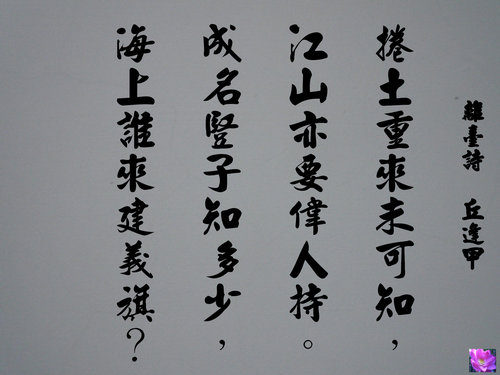 離臺詩 丘逢甲
捲土重來未可知，
江山亦要偉人持。
成名豎子知多少，
海上誰來建義旗？